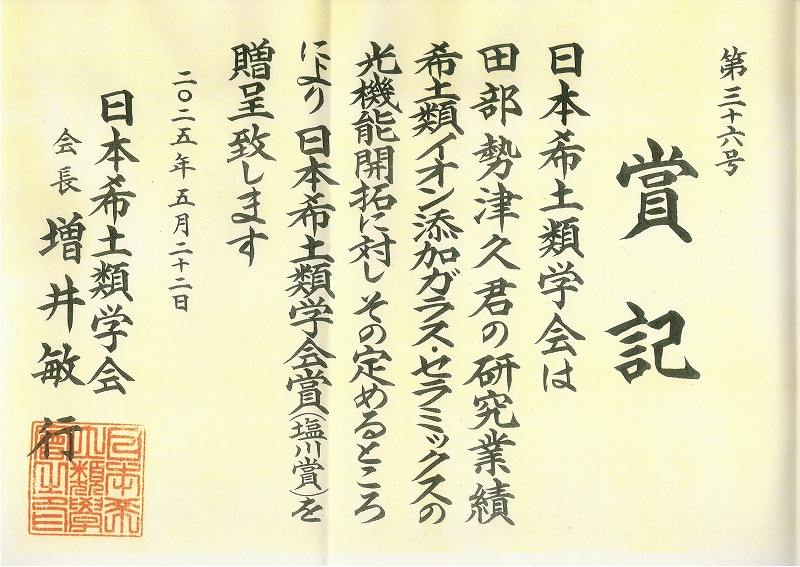 第三十六号
賞記
日本希土類学会は
田部勢津久君の研究業績
希土類イオン添加ガラス・セラミックスの
光機能開拓に対し その定めるところ
により 日本希土類学会賞(塩川賞)を
贈呈致します
二〇二五年五月二十二日
日本希土類学会
会長 増井敏行